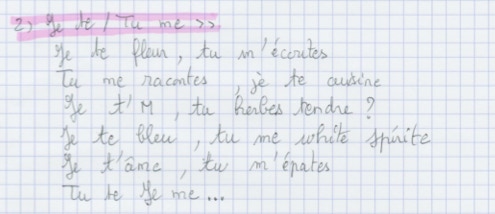 2) Je te / Tu me >>
Je te fleur, tu m'écoutes
Tu me racontes, je te cuisine
Je t'M, tu herbes tendre ?
Je te bleu, tu me white spirite
Je t'âme, tu m'épates
Tu te Je me...